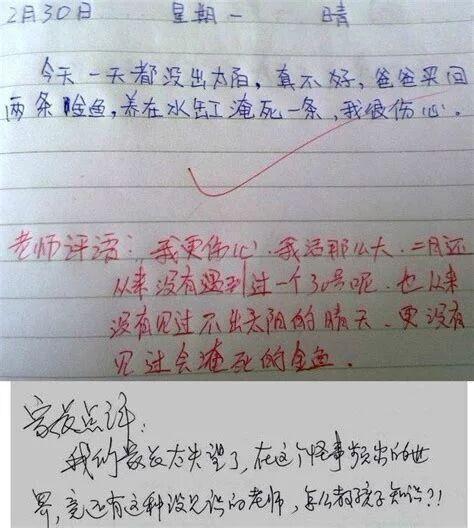 2月30日 星期一 晴
今天一天都没出太阳，真不好，爸爸买回
两条金鱼，养在水缸淹死一条，我很伤心。
老师评语：我更伤心，我活那么大，二月还
从来没有遇到过一个30号呢，也从来
没有见过不出太阳的晴天，更没有
见过会淹死的金鱼．
家长点评：
我们家长太失望了，在这个怪事频出的世
界，竟还有这种没见识的老师，怎么教孩子知识？！